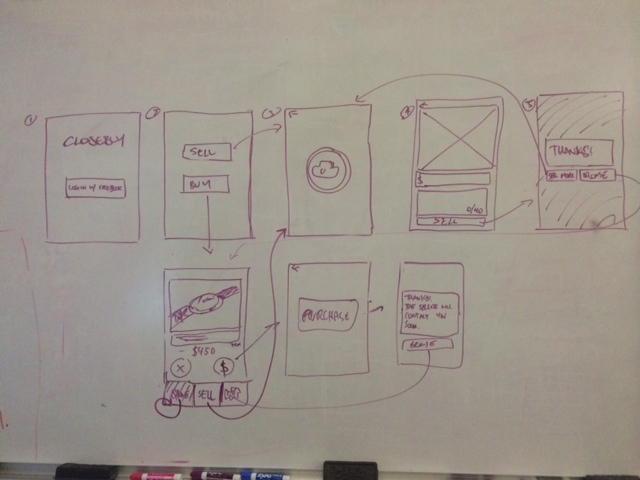 1
CLOSEBY
LOGIN W/ FACEBOOK
2
SELL
BUY
3
4
$
0/40
SELL
5
THANKS!
SELL MORE
BROWSE
$450
X
$
SELL
PURCHASE
THANKS!
THE SELLER WILL
CONTACT YOU
SOON.
BROWSE